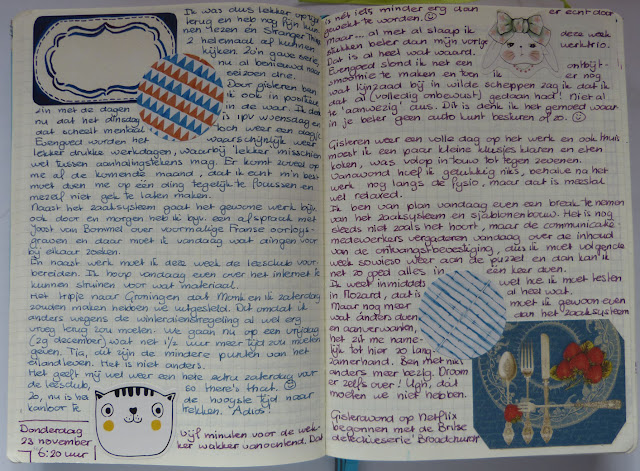 Ik was dus lekker op tijd
terug en heb nog fijn kun-
nen lezen en Stranger Things
2 helemaal af kunnen
kijken. Zo'n gave serie,
nu al benieuwd naar
seizoen drie.
Door gisteren ben
ik ook in positieve
zin met de dagen in de war. Ik dat
nu dat het dinsdag is ipv woensdag en
dat scheelt mentaal toch weer een dagje.
Evengoed worden het waarschijnlijk weer
lekker drukke werkdagen, waarbij 'lekker' misschien
wel tussen aanhalingstekens mag. Er komt zoveel op
me af de komende maand, dat ik echt m'n best
moet doen me op één ding tegelijk te focussen en
mezelf niet gek te laten maken.
Naast het zaaksysteem gaat het gewone werk bijv.
ook door en morgen heb ik bijv. een afspraak met
Joost van Bommel over voormalige Franse oorlogs-
graven en daar moet ik vandaag wat dingen voor
bij elkaar zoeken.
En naast werk moet ik deze week de leesclub voor-
bereiden. Ik hoop vandaag even over het internet te
kunnen struinen voor wat materiaal.
Het tripje naar Groningen dat Monk en ik zaterdag
zouden maken hebben we uitgesteld. Dit omdat ik
anders wegens de winterdienstregeling al wel erg
vroeg terug zou moeten. We gaan nu op een vrijdag
(29 december) wat net 1/2 uur meer tijd zou moeten
geven. Tja, dit zijn de mindere punten van het
eilandleven. Het is niet anders.
Het geeft mij wel weer een hele extra zaterdag voor
de leesclub, so there's that. ☺
Zo, nu is het de hoogste tijd naar
kantoor te trekken. 'Adios'!
Donderdag
23 november
6:20 uur
Vijf minuten voor de wek-
ker wakker vanochtend. Dat
is nét iets minder erg dan
gewekt te worden. ☺
Maar... al met al slaap ik er echt door
stukken beter dan mijn vorige deze week
Dat is al heel wat waard. werktrio.
Evengoed stond ik net een ontbijt-
smoothie te maken en toen ik er nog
wat lijnzaad bij in wilde scheppen zag ik dat ik
dat al (volledig onbewust) gedaan had! Niet al
te 'aanwezig' dus. Dit is denk ik het gemoed waar-
in je beter geen auto kunt besturen of zo. ☺
Gisteren weer een volle dag op het werk en ook thuis
moest ik een paar kleine klusjes klaren en eten
koken, was volop in touw tot tegen zevenen.
Vanavond hoef ik gelukkig niks, behalve na het
werk nog langs de fysio, maar dat is meestal
wel relaxed.
Ik ben van plan vandaag even een break te nemen
van het zaaksysteem en sjablonenbouw. Het is nog
steeds niet zoals het hoort, maar de communicatie-
medewerkers vergaderen vandaag over de inhoud
van de ontvangstbevestiging, dus ik moet volgende
week sowieso weer aan de puzzel en dan kan ik
net zo goed alles in één keer doen.
Ik weet inmiddels wel hoe ik moet testen
in Mozard, dat is al heel wat.
Maar nog meer moet ik gewoon even
wat ánders doen dan het zaaksysteem
en aanverwanten,
het zit me name-
lijk tot hier zo lang-
zamerhand. Ben met niet
anders meer bezig. Droom
er zelfs over! Ugh, dat
moeten we niet hebben.
Gisteravond op Netflix
begonnen met de Britse
detectiveserie 'Broadchurch'